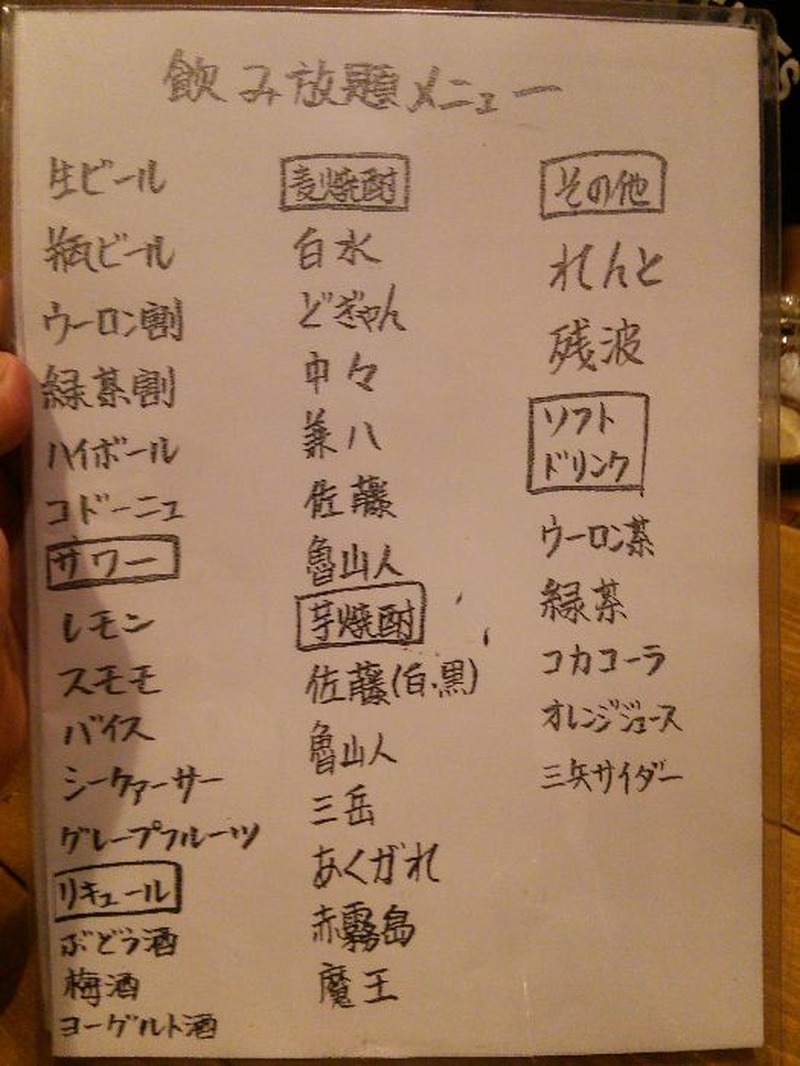 飲み放題メニュー
生ビール
瓶ビール
ウーロン割
緑茶割
ハイボール
コドーニュ
サワー
レモン
スモモ
バイス
シークァーサー
グレープフルーツ
リキュール
ぶどう酒
梅酒
ヨーグルト酒
麦焼酎
白水
どぎゃん
中々
兼八
佐藤
魯山人
芋焼酎
佐藤(白・黒)
魯山人
三岳
あくがれ
赤霧島
魔王
その他
れんと
残波
ソフト
ドリンク
ウーロン茶
緑茶
コカコーラ
オレンジジュース
三矢サイダー